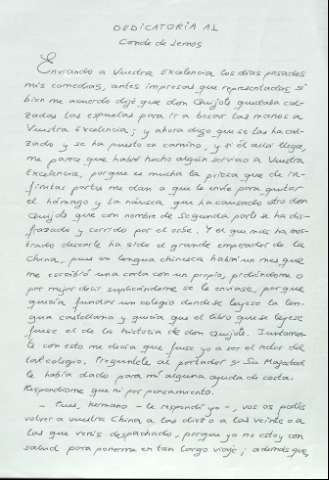 DEDICATORIA AL
Conde de Lemos
Enviando a Vuestra Excelencia los días pasados
mis comedias, antes impresas que representadas, si
bien me acuerdo dije que don Quijote quedaba cal-
zadas las espuelas para ir a besar las manos a
Vuestra Excelencia; y ahora digo que se las ha cal-
zado y se ha puesto en camino, y si él allá llega,
me parece que habré hecho algún servicio a Vuestra
Excelencia, porque es mucha la priesa que de in-
finitas partes me dan a que le envíe para quitar
el hámago y la náusea que ha causado otro don
Quijote que con nombre de Segunda parte se ha dis-
frazado y corrido por el orbe. Y el que más ha mos-
trado desearle ha sido el grande emperador de la
China, pues en lengua chinesca habrá un mes que
me escribió una carta con un propio, pidiéndome o
por mejor decir suplicándome se le enviase, porque
quería fundar un colegio donde se leyese la len-
gua castellana y quería que el libro que se leyese
fuese el de la historia de don Quijote. Juntamen-
te con esto me decía que fuese yo a ser el rector del
tal colegio. Preguntéle al portador si Su Majestad
le había dado para mí alguna ayuda de costa.
Respondióme que ni por pensamiento.
- Pues, hermano - le respondí yo -, vos os podéis
volver a vuestra China a las diez o a las veinte o a
las que venís despachado, porque yo no estoy con
salud para ponerme en tan largo viaje; además que,